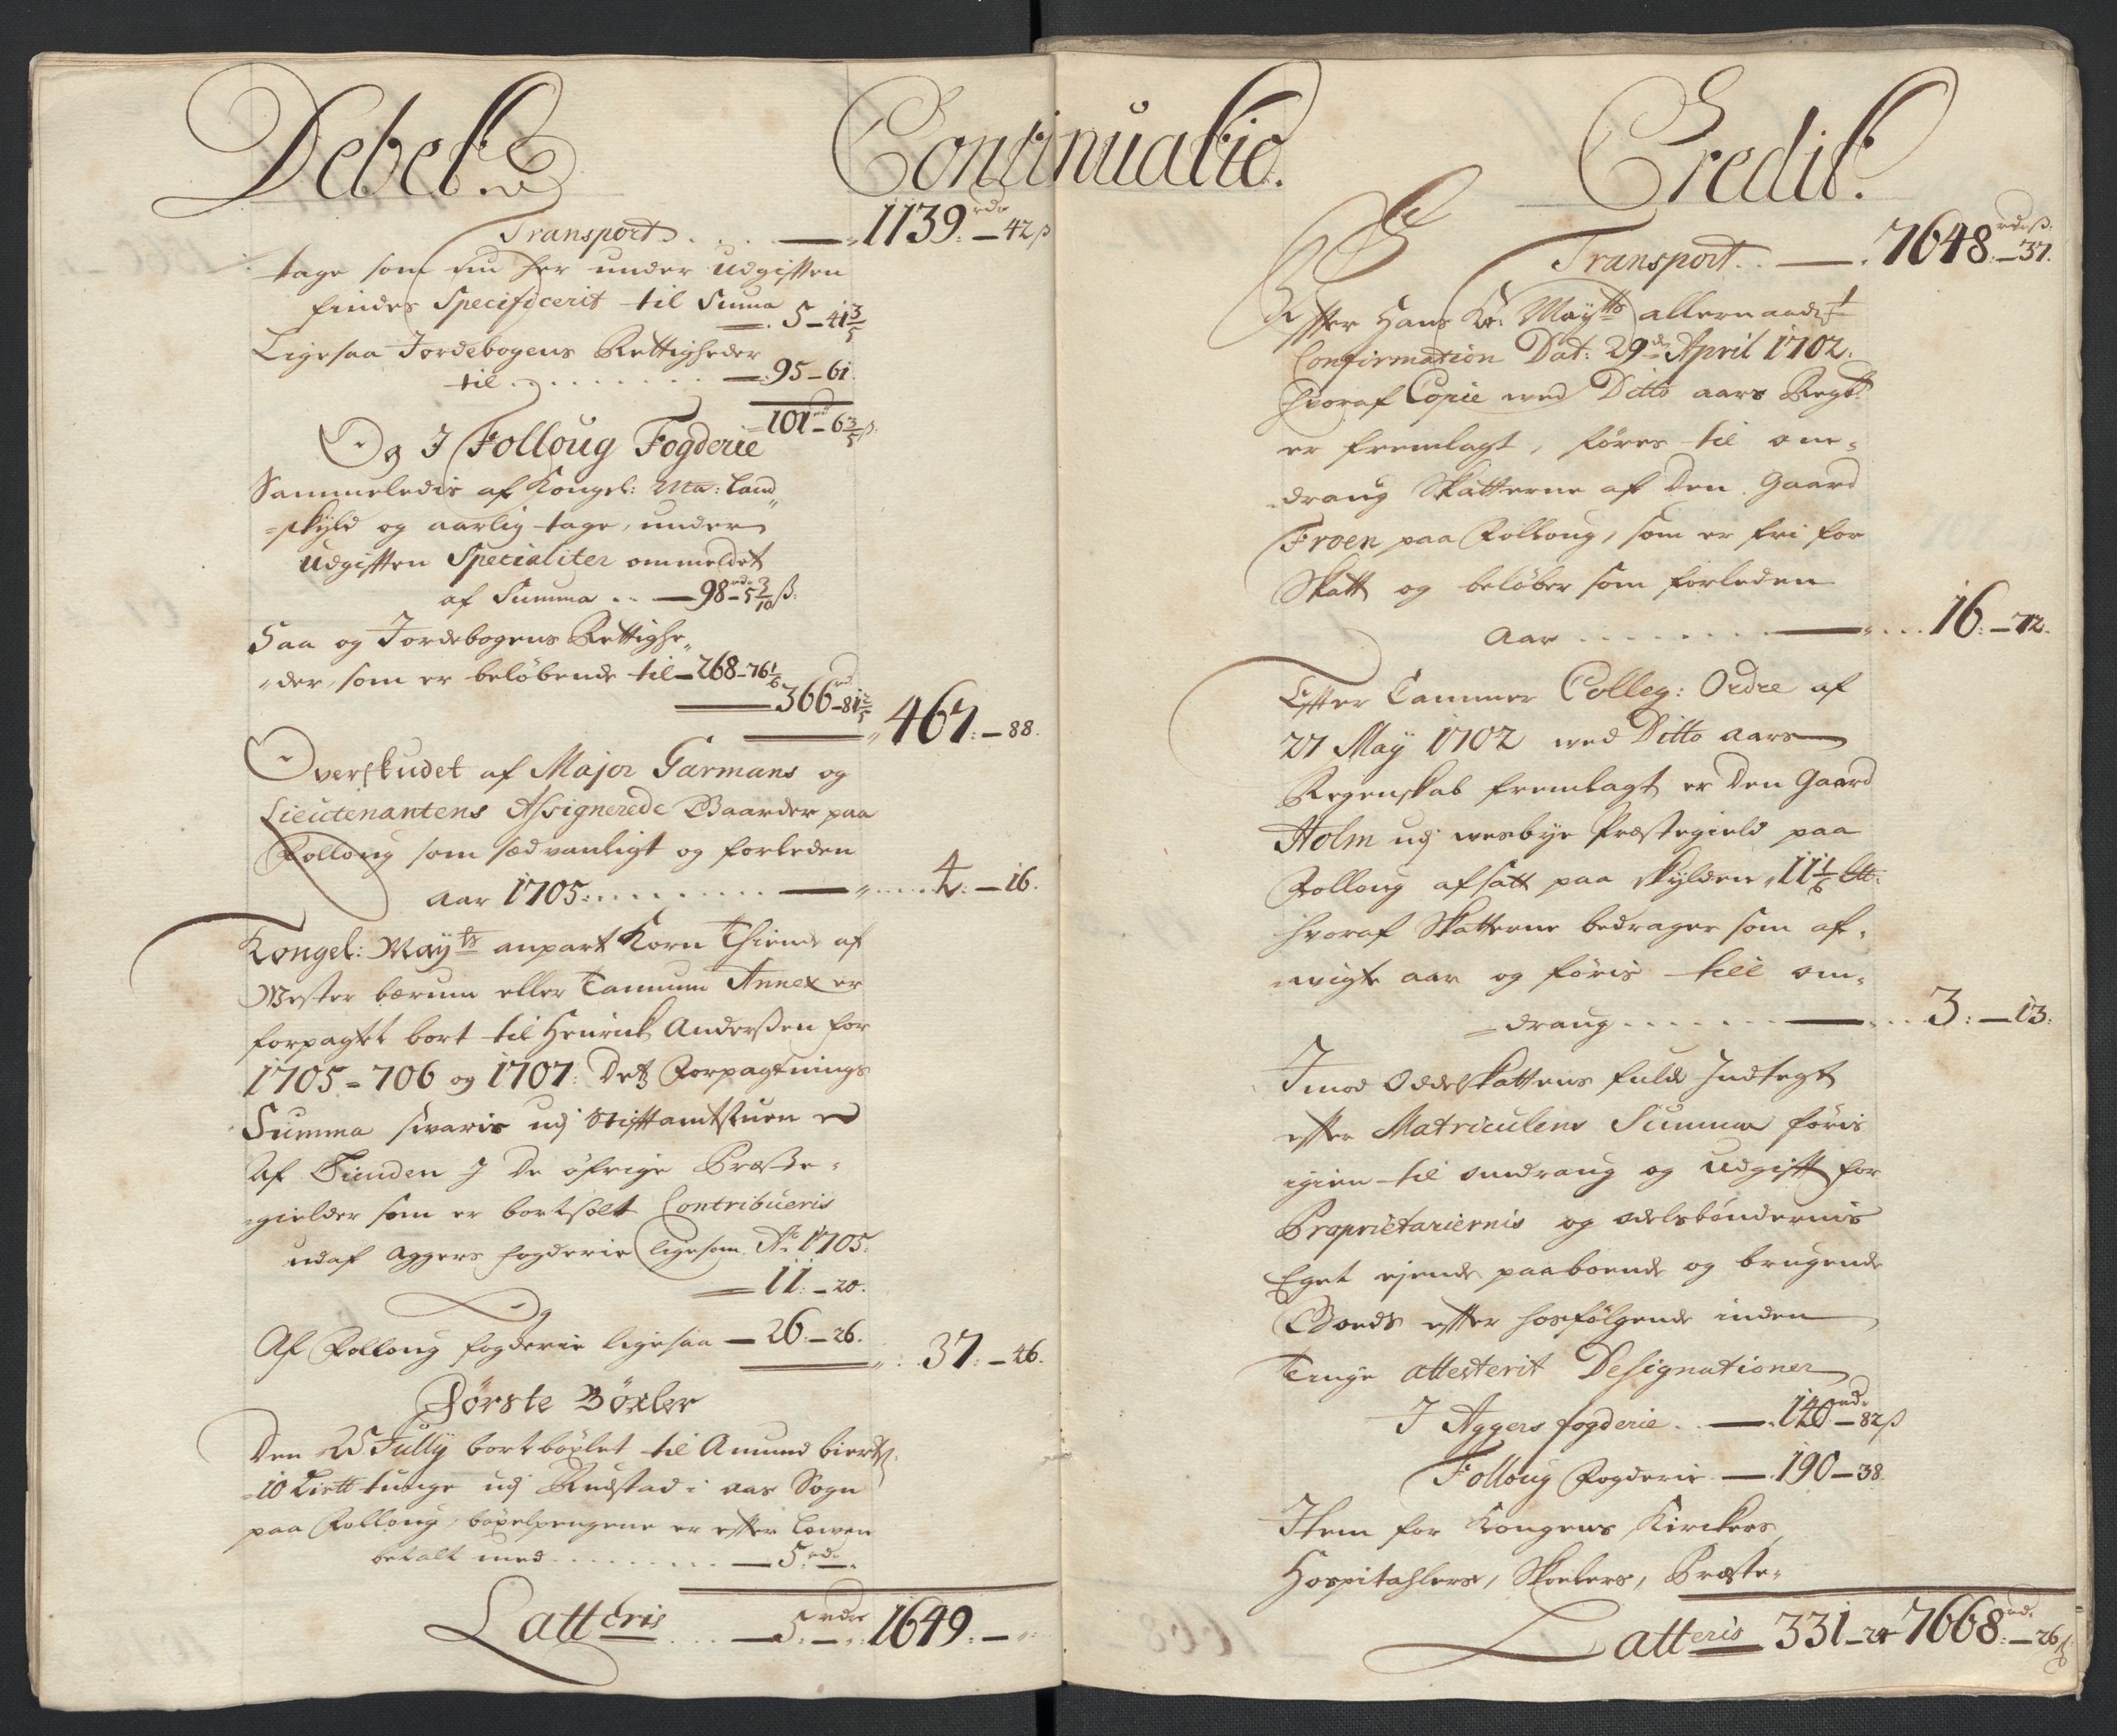 Debet
Continuatio.
Credit.
Transport . . . . — 1139 rdr – 42 ß
tage som nu her under udgifften
findes Specificerit til Suma
— 5 – 41 3/5
Ligesaa Jordebogens Rettigheder
til . . . . . . . . — 95 – 61.
101 rd – 6 3/5 ß.
Og J Folloug Fogderie
Sammeledis af Kongel: Ma: Land
=skyld og aarlig tage, under
Udgifften Specialiter ommeldet
af Summa . . — 98 rdr – 5 3/10 ß.
Saa og Jordebogens Rettighe„
„der, som er beløbende til – 268 – 76 1/6
— 366 rd – 81 2/5
467. – 88.
Overskudet af Major Garmans og
Lieutenantens Assignerede Gaarder paa
Folloug som sædvanligt og forleden
Aar 1705: . . . . . . . — „ . . . . 4. – 16.
Kongel: Mayts anpart Korn Thiende af
Wester bærum eller Tannum Annex er
forpagtet bort til Henrich Anderßen for
1705 = 706 og 1707: Det Forpagtnings
Summa svaris udj Stifftamtstuen
Af Tienden J de øfrige Præste=
=gielder som er bortsolt Contribueris
udaf Aggers fogderie ligesom Ao 1705:
— 11. – 20.
Og
Af Folloug fogderie ligesaa — 26. – 26.
37. – 46.
Første Böxler
Den 25 Jully bortböxlet til Amund
=10 Lis℔ tunge udj Rudstad i Aas Sogn
paa Folloug, böxelpengene er efter Lowen
betalt med . . . . . . . . . — 5 rdr –
Latteris . . . — 5 rdr – „ 1649. – „
Transport . . — . 7648 rdr – 37 ß.
Effter Hans Kr: Mayts allernaadigst
Confirmation Dat: 29de April 1702.
hvoraf Copie med Ditto aars Regsk:
er fremlagt, føres til one=
=draug Skatterne af den Gaard
Froen paa Folloug, som er fri for
Skatt og beløber som forleden
Aar . . . . . . . . — „ . . . 16. – 72.
Effter Cammer Colleg: Ordre af
27 May 1702 med Ditto aars
Regenskab fremlagt er den Gaard
Holm udj wesbye Præstegield paa
Folloug afsatt paa skylden 11 1/6 ℔.
hvoraf Skatterne bedrager som af=
=wigte aar og føris till om=
=draug . . . . . . — . . . . 3. – 13.
Jmod Oddelskattens fulde Jndtegt
effter Matriculens Summa føris
igien til omdraug og Udgifft for
Proprietariernis og odelsbøndernis
Eget ejende paaboende og brugende
Goeds effter hosfølgende inden
Tinge attesterit Designationer
J Aggers fogderie . . — . 140 rdr – 82 ß
Folloug Fogderie — . 190 – 38.
Jtem for Kongens Kirckers,
Hospitahlers, Skolers, Præste=
Latteris 331 – 24 7668 rdr – 26 ß